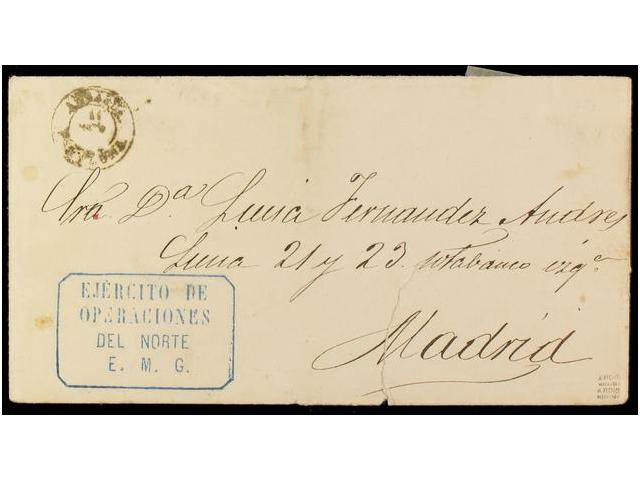 11
Sra. Dª Luisa Fernandez Andres
Luna 21 y 23. sotabanco izqª.
Madrid
EJÉRCITO DE
OPERACIONES
DEL NORTE
E. M. G.